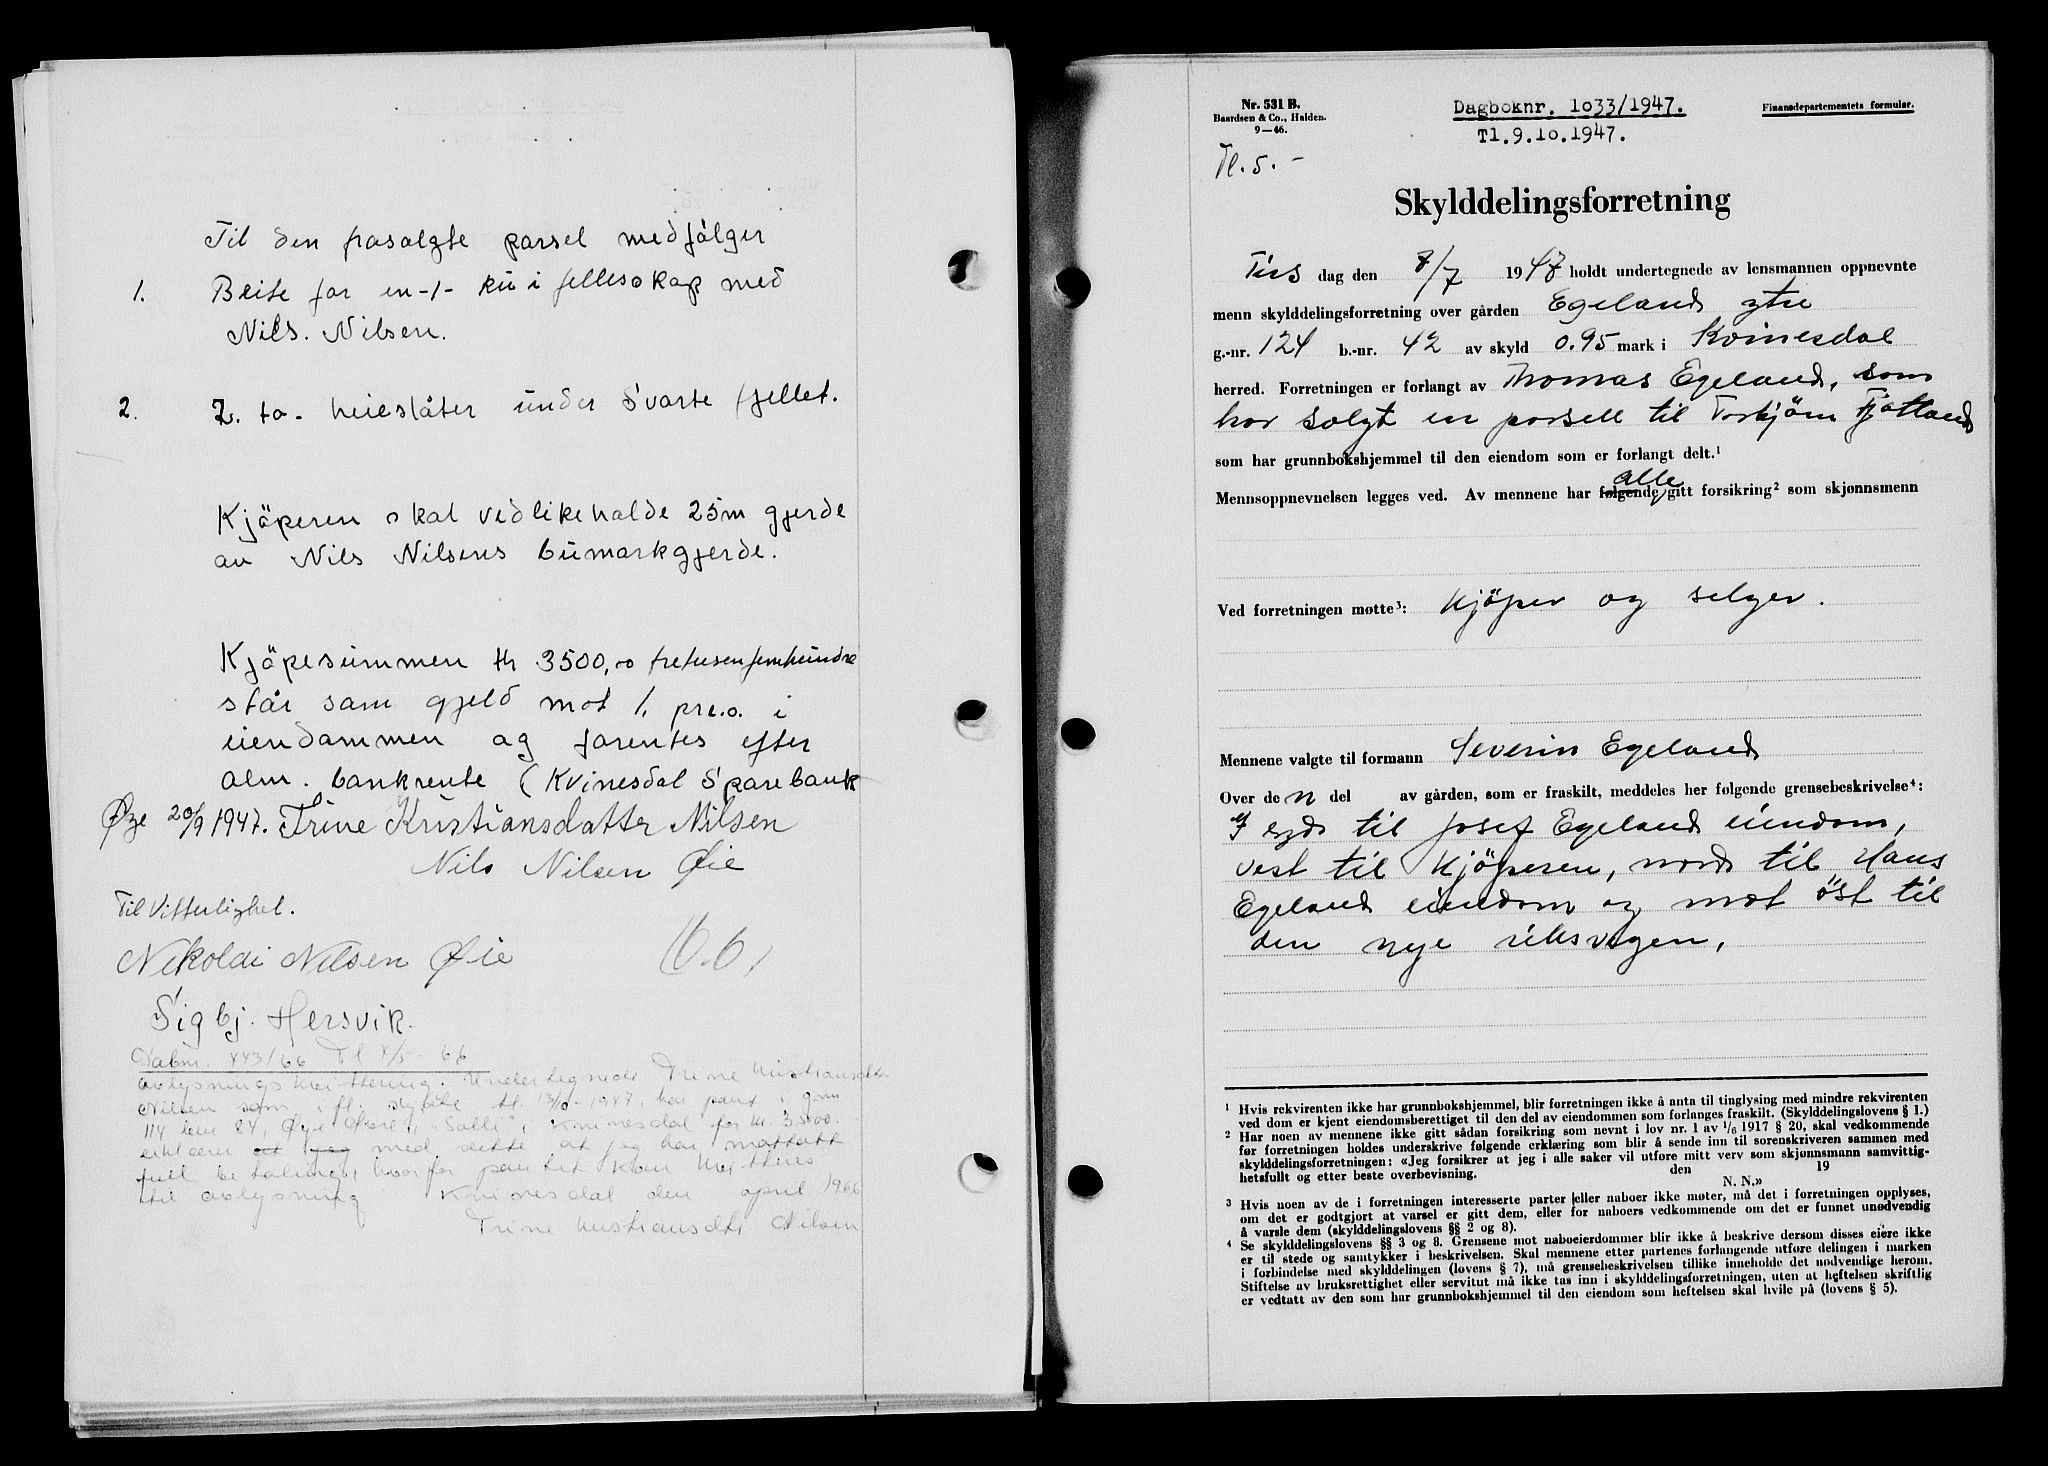 Til den frasalgte parsel medfölger
1. Beite for en -1- kü i fellesskap med
Nils. Nilsen.
2. 2. to. heieslåter ünder Svarte fjellet.
Kjöperen skal vedlikehalde 25m gjerde
av Nils Nilsens bümarkgjerde.
Kjöpesümmen kr 3500,00 tretusenfemhündre
står som gjeld mot 1. pri.o. i
eiendommen og forentes efter
alm. bankrente (Kvinesdal Sparebank
Øye 20/9 1947. Trine Kristiansdatter Nilsen
Nils Nilsen Øie
Til Vitterlighet.
Nikolai Nilsen Øie
Sigbj. Hersvik.
Dabnr. 443/66 Tl 4/5-66
avlysnings kvittering. Undertegnede Trine Kristiansdtr
Nilsen som i fl. skjøte tl. 13/10-1947, har pant i g.nr
114 bnr 84, Øye "Solli" i Kvinesdal for kr. 3500.
erklærer at jeg med dette at jeg har mottatt
full betaling, hvorfor pantet kan kvitteres
til avlysning Kvinesdal den april 1966
Trine Kristiansdtr. Nilsen
Nr. 531 B.
Baardsen & Co., Halden.
9—46.
Dagboknr. 1o33/1947.
Tl.9.1o.1947.
Finansdepartementets formular.
Tl. 5.-
Skylddelingsforretning
Tirs dag den 8/7 1947 holdt undertegnede av lensmannen oppnevnte
menn skylddelingsforretning over gården Egeland ytre
g.-nr. 124 b.-nr. 42 av skyld 0.95 mark i Kvinesdal
herred. Forretningen er forlangt av Thomas Egeland, som
har solgt en parsell til Torbjörn Fjotland
som har grunnbokshjemmel til den eiendom som er forlangt delt.¹
alle
Mennsoppnevnelsen legges ved. Av mennene har følgende gitt forsikring² som skjønnsmenn
Ved forretningen møtte³: Kjöper og selger.
Mennene valgte til formann Severin Egeland
Over den del av gården, som er fraskilt, meddeles her følgende grensebeskrivelse⁴:
I syd til Josef Egeland eiendom,
vest til Kjöperen, nord til Hans
Egeland eiendom og mot öst til
den nye riksvegen.
¹ Hvis rekvirenten ikke har grunnbokshjemmel, blir forretningen ikke å anta til tinglysing med mindre rekvirenten
ved dom er kjent eiendomsberettiget til den del av eiendommen som forlanges fraskilt. (Skylddelingslovens § 1.)
² Har noen av mennene ikke gitt sådan forsikring som nevnt i lov nr. 1 av 1/6 1917 § 20, skal vedkommende
før forretningen holdes underskrive følgende erklæring som blir å sende inn til sorenskriveren sammen med
skylddelingsforretningen: «Jeg forsikrer at jeg i alle saker vil utføre mitt verv som skjønnsmann samvittig-
hetsfullt og etter beste overbevisning. den 19
N. N.»
³ Hvis noen av de i forretningen interesserte parter eller naboer ikke møter, må det i forretningen opplyses,
om det er godtgjort at varsel er gitt dem, eller for naboers vedkommende om det er funnet unødvendig
å varsle dem (skylddelingslovens §§ 2 og 8).
⁴ Se skylddelingslovens §§ 3 og 8. Grensene mot naboeierdommer blir ikke å beskrive dersom disses eiere ikke
er til stede og samtykker i beskrivelsen. Skal mennene etter partenes forlangende utføre delingen i marken
i forbindelse med skylddelingen (lovens § 7), må grensebeskrivelsen tillike inneholde det nødvendige herom.
Stiftelse av bruksrettighet eller servitut må ikke tas inn i skylddelingsforretningen, uten at heftelsen skriftlig
er vedtatt av den som har grunnbokshjemmel til den eiendom som heftelsen skal hvile på (lovens § 5).